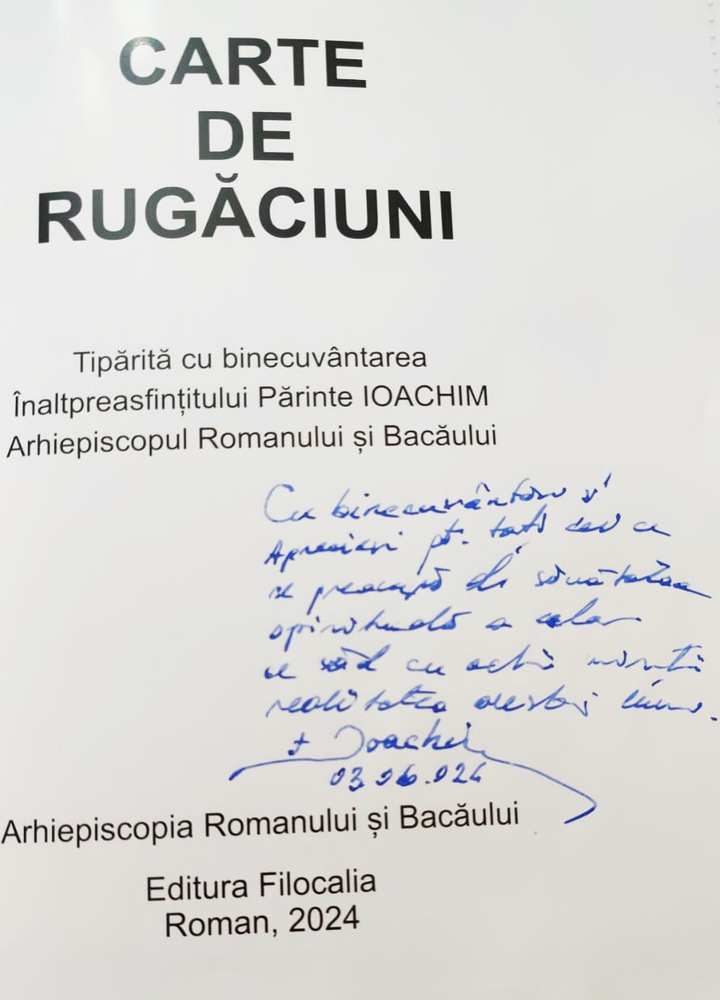 CARTE
DE
RUGĂCIUNI
Tipărită cu binecuvântarea
Înaltpreasfințitului Părinte IOACHIM
Arhiepiscopul Romanului și Bacăului
Cu binecuvântare și
Aprecieri pt. toți cei ce
se preocupă de sănătatea
spirituală a celor
ce văd cu ochii minții
realitatea acestei lumi.
+ Ioachim
03.06.024
Arhiepiscopia Romanului și Bacăului
Editura Filocalia
Roman, 2024